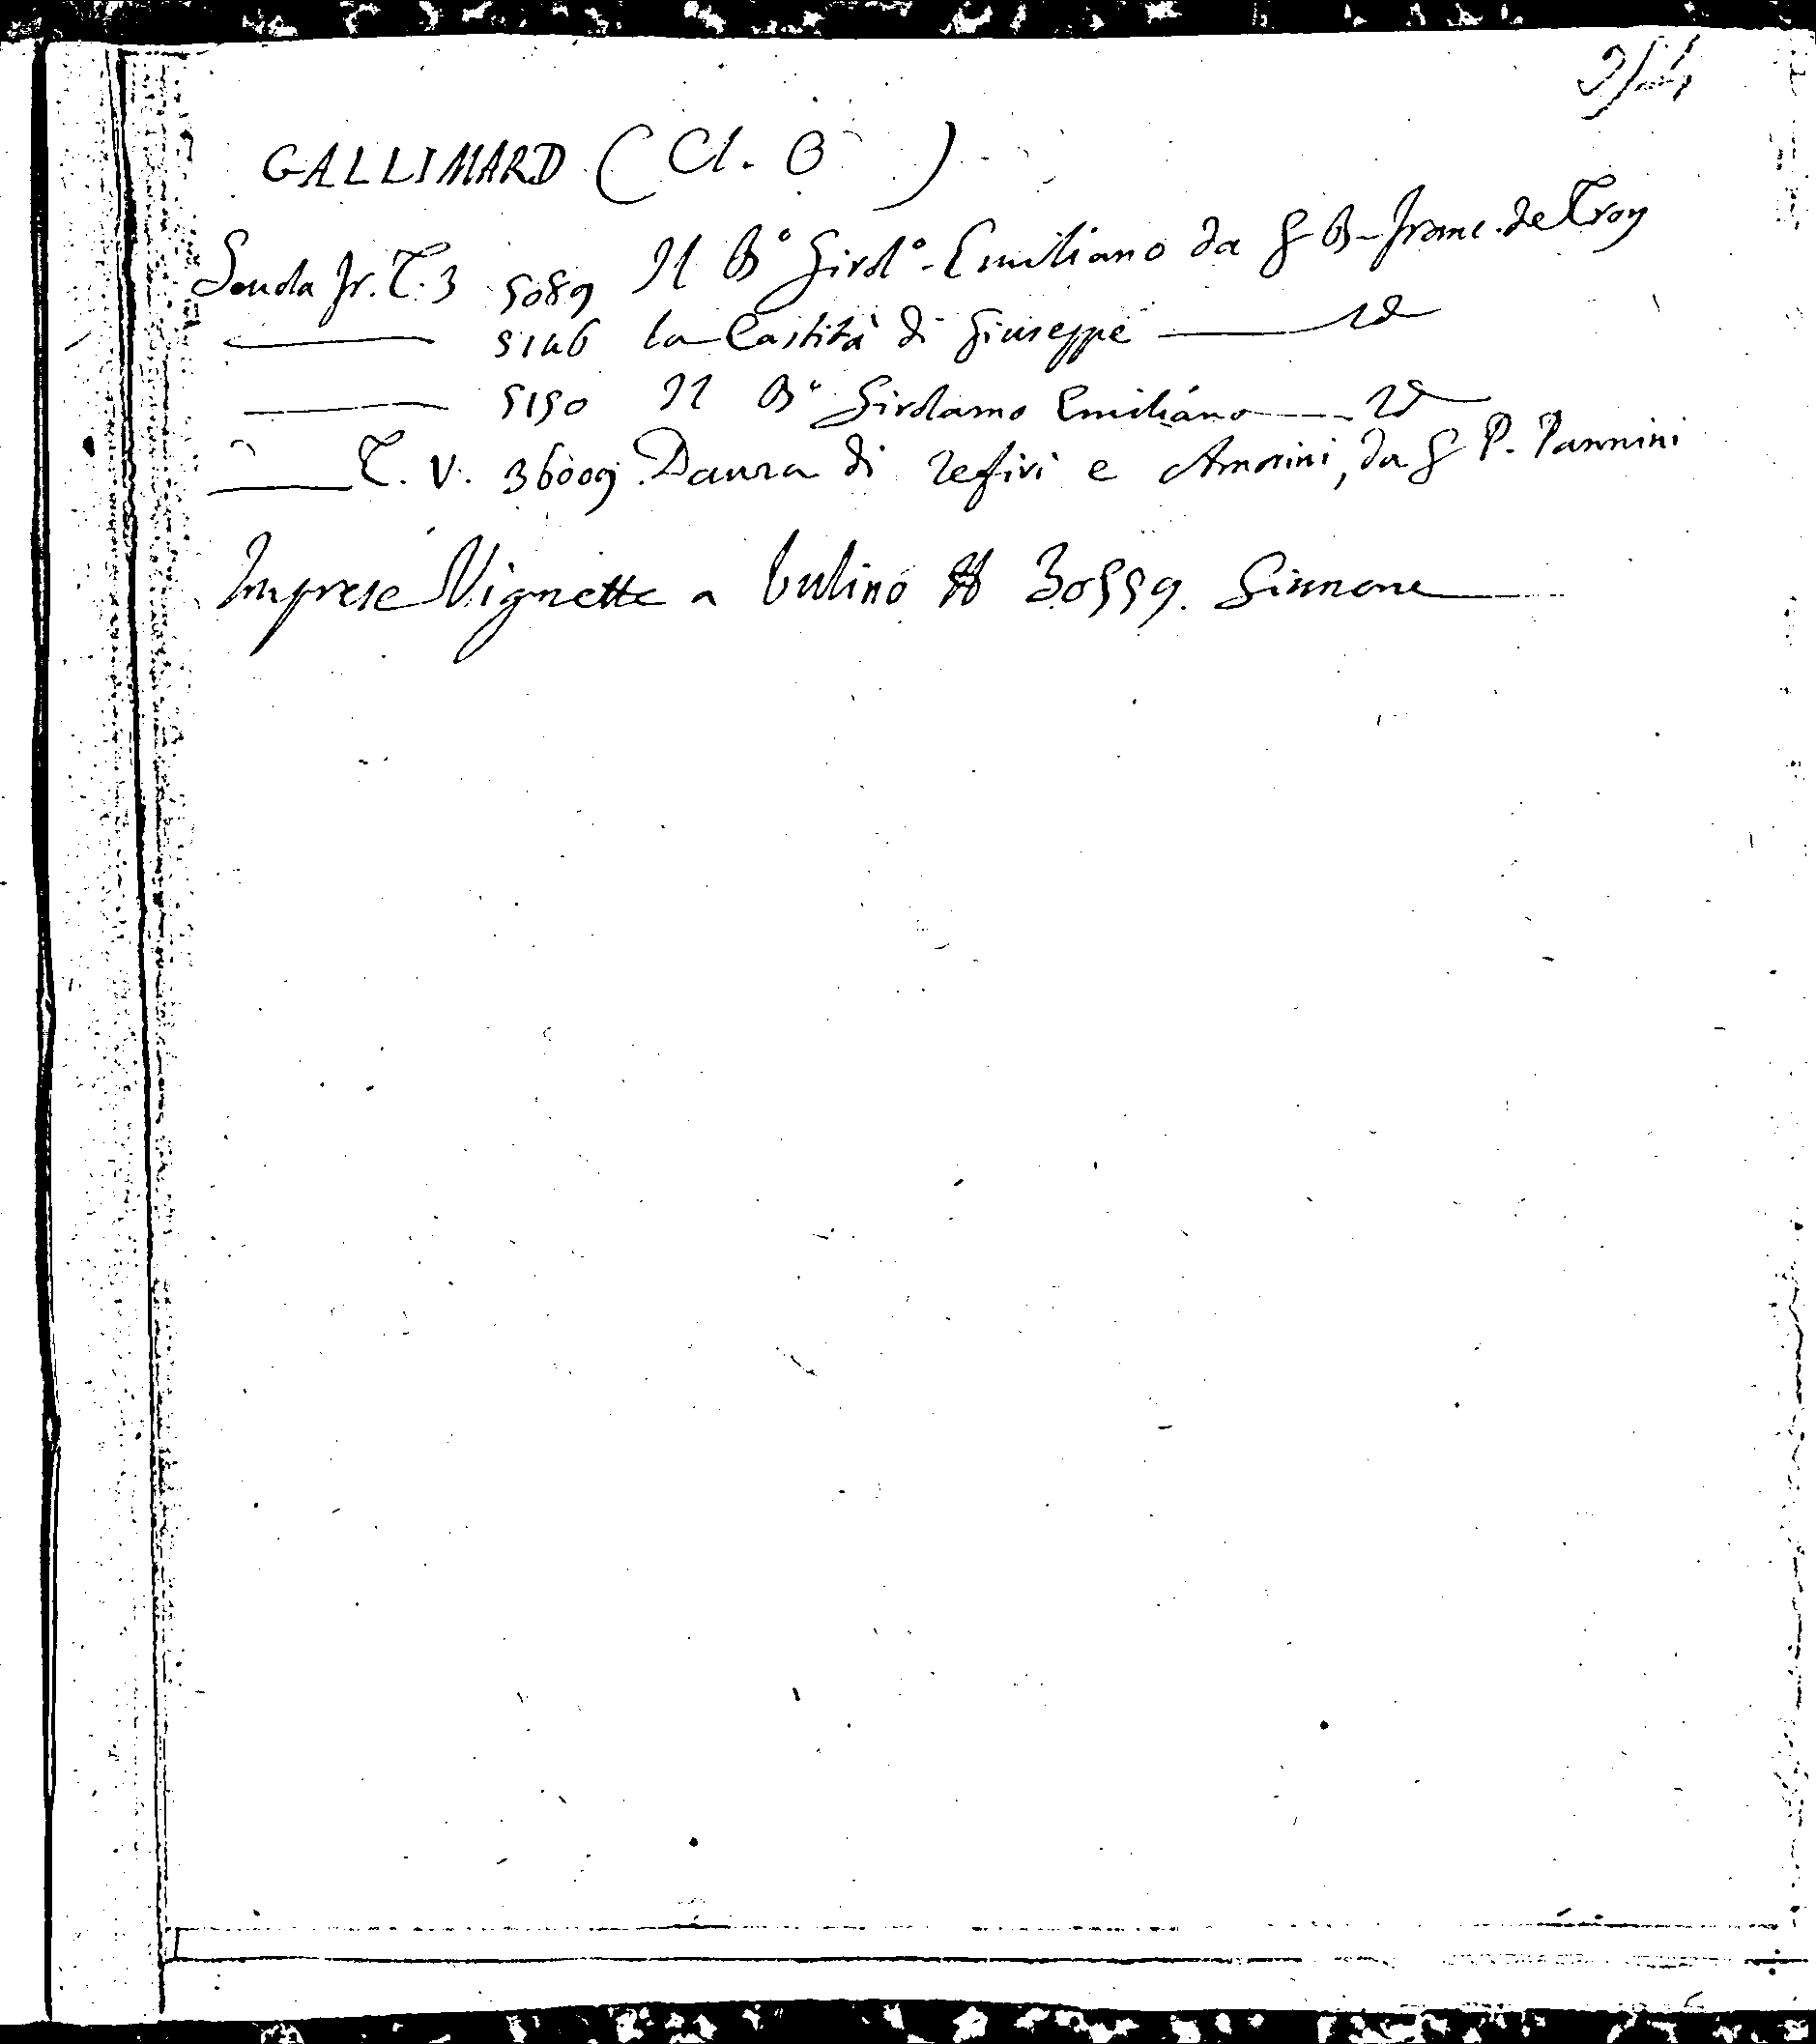 GALLIMARD (Cl. O )
Scuola Fr. T. 3 5089 Il B.º Girol.º Emiliano da G B. Franc. de Troy
5146 la Castità di Giuseppe id
5150 Il B.º Girolamo Emiliano id
T. V. 36009. Danza di Zefiri e Amorini, da G P. Pannini
Imprese Vignette a bulino 30559. Giunone